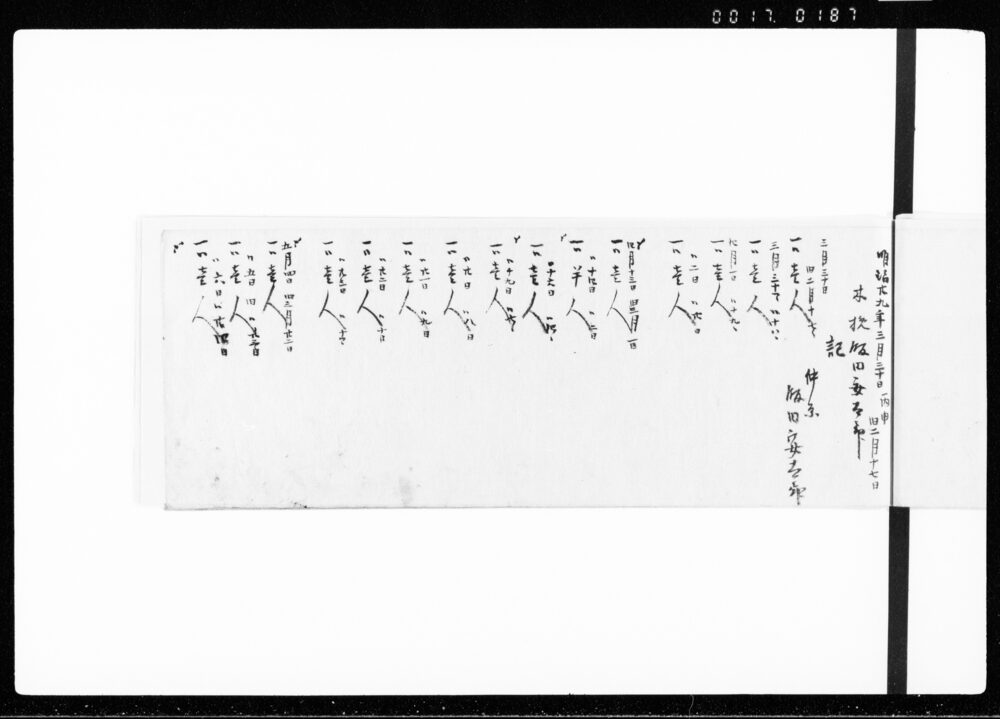 0017.0187
明治廿九年三月三十日 丙申
旧二月十七日
木挽 飯田安太郎
記
三月三十日
旧二月十七〃
一 〃 壱人
仲条
飯田安太郎
三月三十一〃 〃十八〃
一 〃 壱人
四月一日 〃十九〃
一 〃 壱人
〃二日 〃廿日
一 〃 壱人
四月十三日 旧三月一日
一 〃 壱人
〃十四日 〃二日
一 〃 半人
〃十六日 〃四〃
一 〃 壱人
〃十九日 〃七〃
一 〃 壱人
〃廿日 〃八日
一 〃 壱人
〃廿一日 〃九日
一 〃 壱人
〃廿二日 〃十日
一 〃 壱人
〃廿三日
一 〃 壱人
五月四日 旧三月廿二日
一 〃 壱人
〃五日 旧〃廿三日
一 〃 壱人
〃六日 〃廿四日
一 〃 壱人